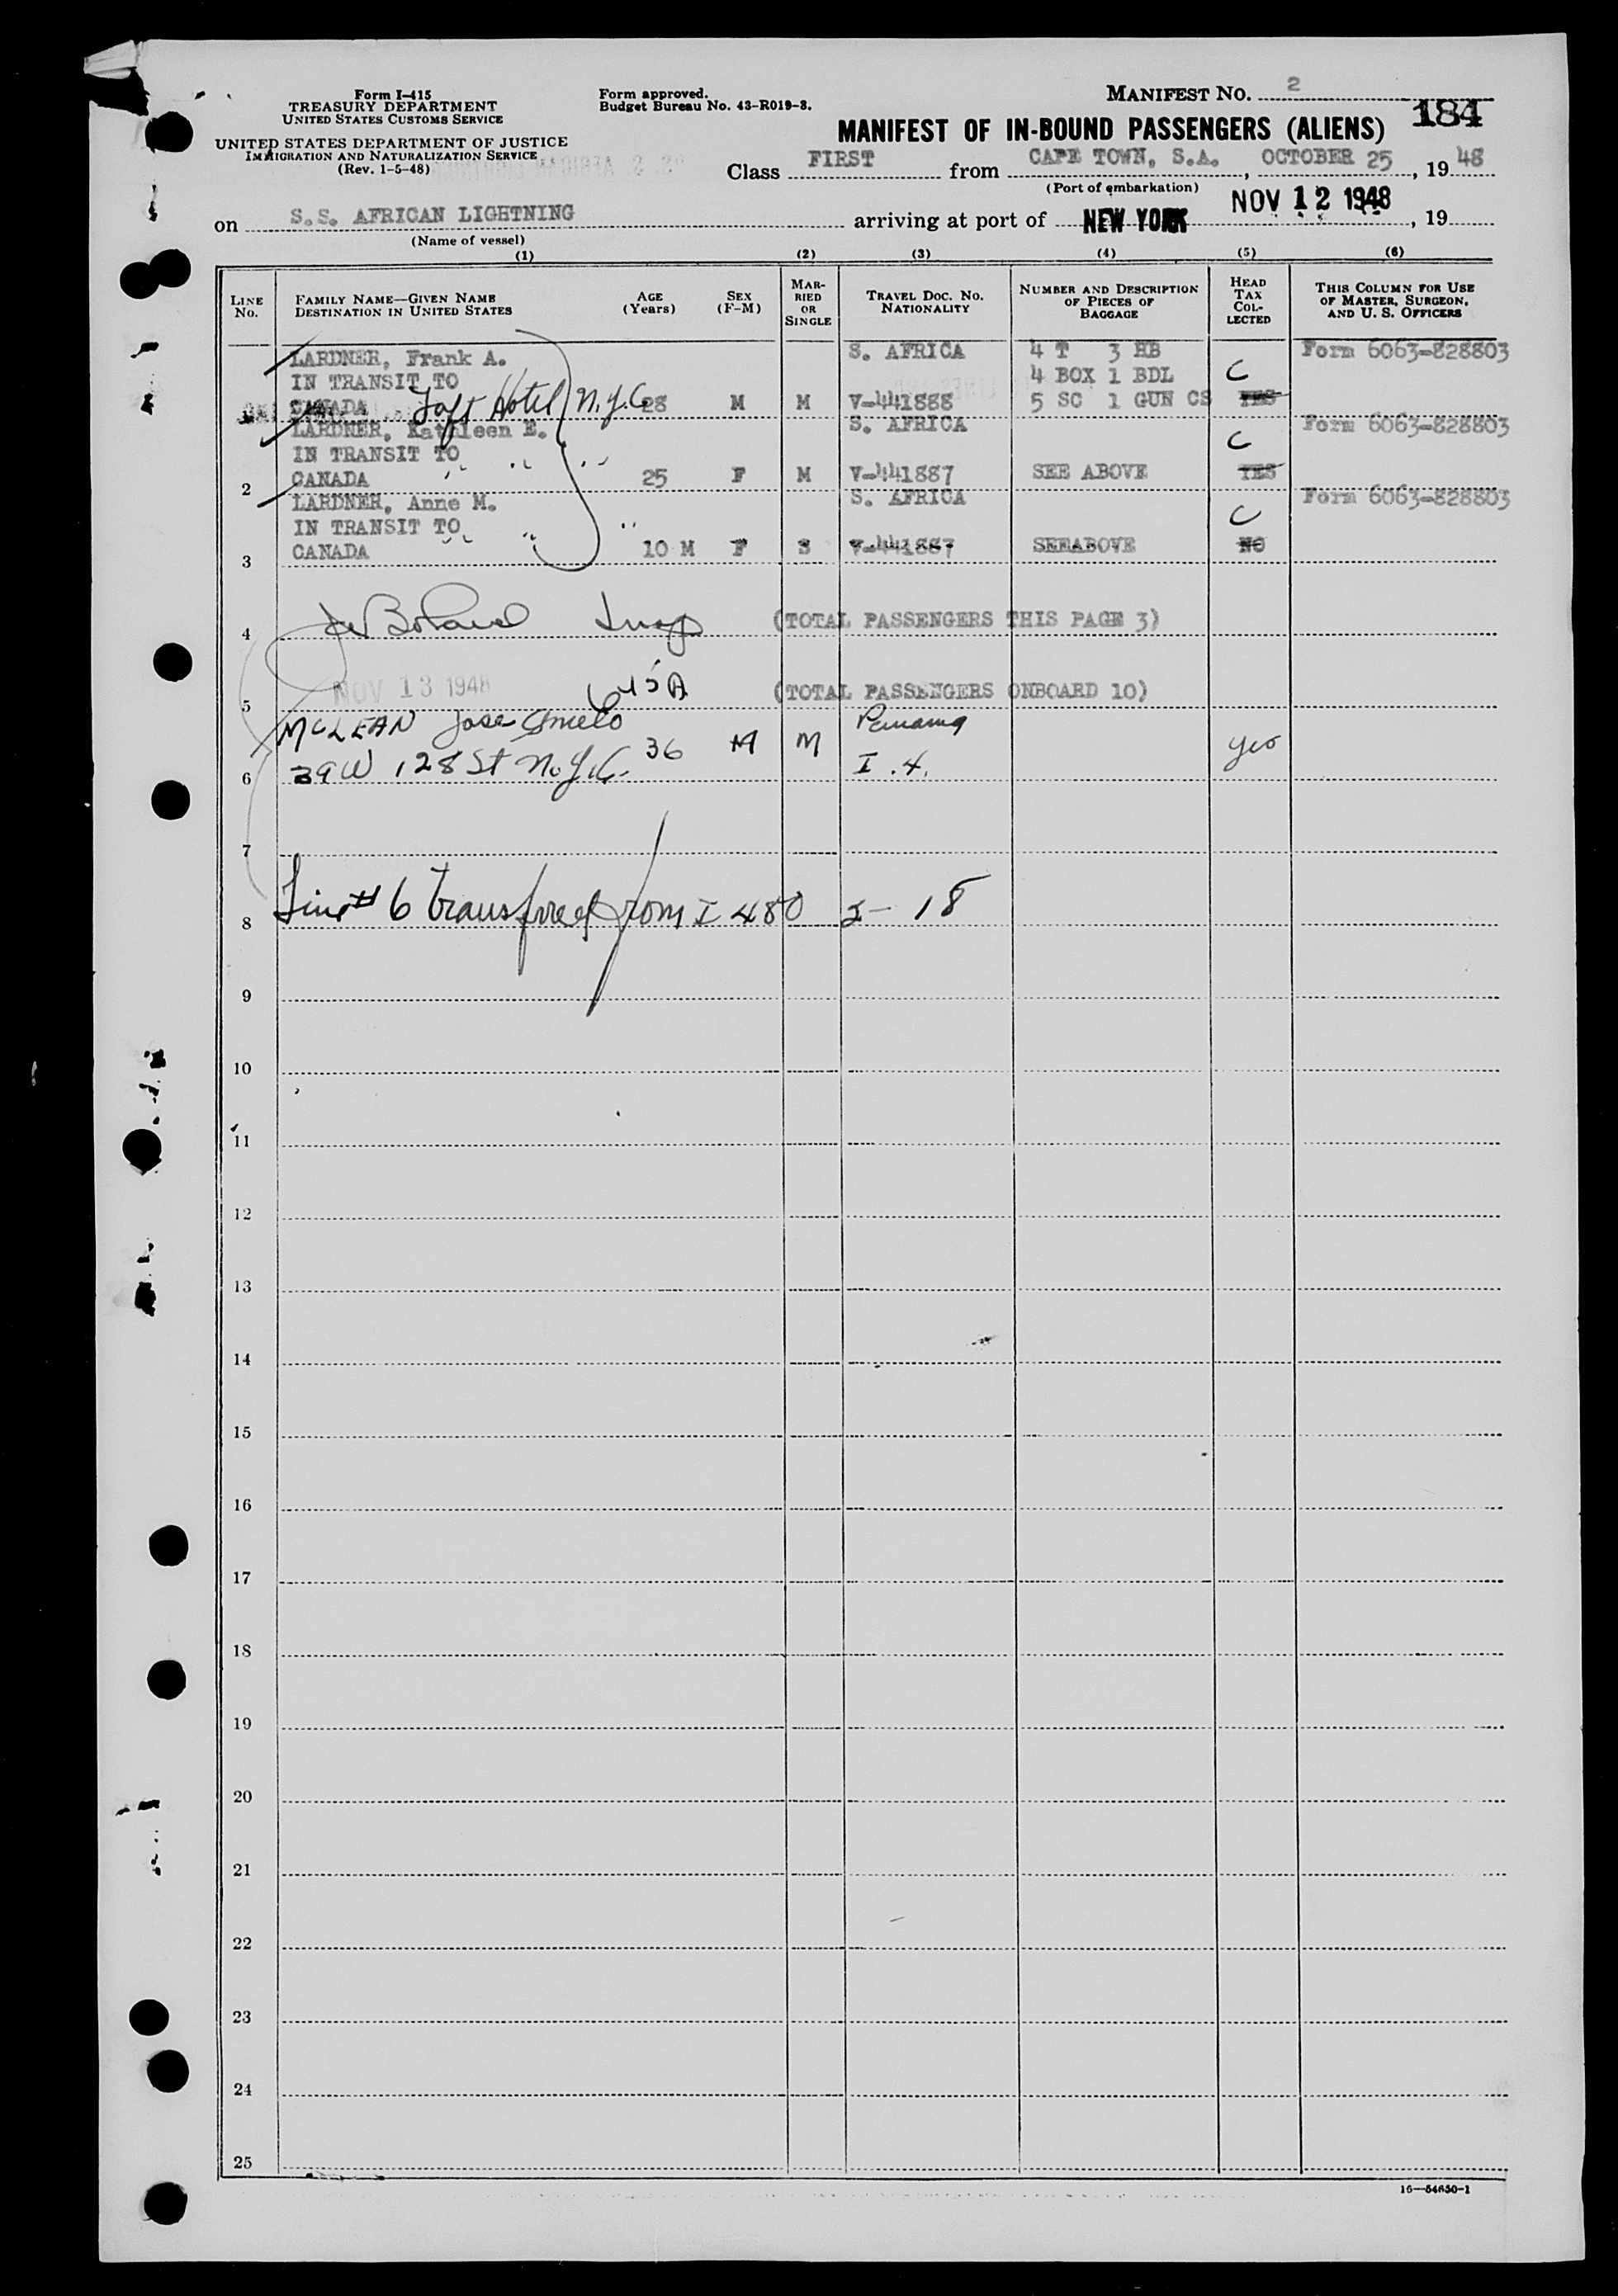 Form I-415
TREASURY DEPARTMENT
UNITED STATES CUSTOMS SERVICE
UNITED STATES DEPARTMENT OF JUSTICE
IMMIGRATION AND NATURALIZATION SERVICE
(Rev. 1-5-48)
Form approved.
Budget Bureau No. 43-R019-3.
MANIFEST NO. 2
184
MANIFEST OF IN-BOUND PASSENGERS (ALIENS)
Class FIRST from CAPE TOWN, S.A., OCTOBER 25, 19 48
(Port of embarkation)
on S.S. AFRICAN LIGHTNING arriving at port of NEW YORK NOV 12 1948, 19
(Name of vessel)
(1) (2) (3) (4) (5) (6)
LINE No.
FAMILY NAME—GIVEN NAME
DESTINATION IN UNITED STATES
AGE (Years)
SEX (F-M)
MARRIED OR SINGLE
TRAVEL DOC. NO.
NATIONALITY
NUMBER AND DESCRIPTION OF PIECES OF BAGGAGE
HEAD TAX COLLECTED
THIS COLUMN FOR USE OF MASTER, SURGEON, AND U. S. OFFICERS
LARDNER, Frank A. S. AFRICA 4 T 3 HB Form 6063-828803
IN TRANSIT TO 4 BOX 1 BDL C
CANADA Taft Hotel N.Y.C. 28 M M V-441888 5 SC 1 GUN CS YES
LARDNER, Kathleen E. S. AFRICA Form 6063-828803
IN TRANSIT TO " " " C
2 CANADA 25 F M V-441887 SEE ABOVE YES
LARDNER, Anne M. S. AFRICA Form 6063-828803
IN TRANSIT TO " " " C
3 CANADA 10 M F S V-441887 SEEABOVE NO
4 (TOTAL PASSENGERS THIS PAGE 3)
NOV 13 1948
5 (TOTAL PASSENGERS ONBOARD 10)
McLEAN Jose Panama
6 39 W 128 St N.Y.C. 36 M M I.4. yes
7
8 Line # 6 transferred from I 480 I-18
9
10
11
12
13
14
15
16
17
18
19
20
21
22
23
24
25
16—54650-1